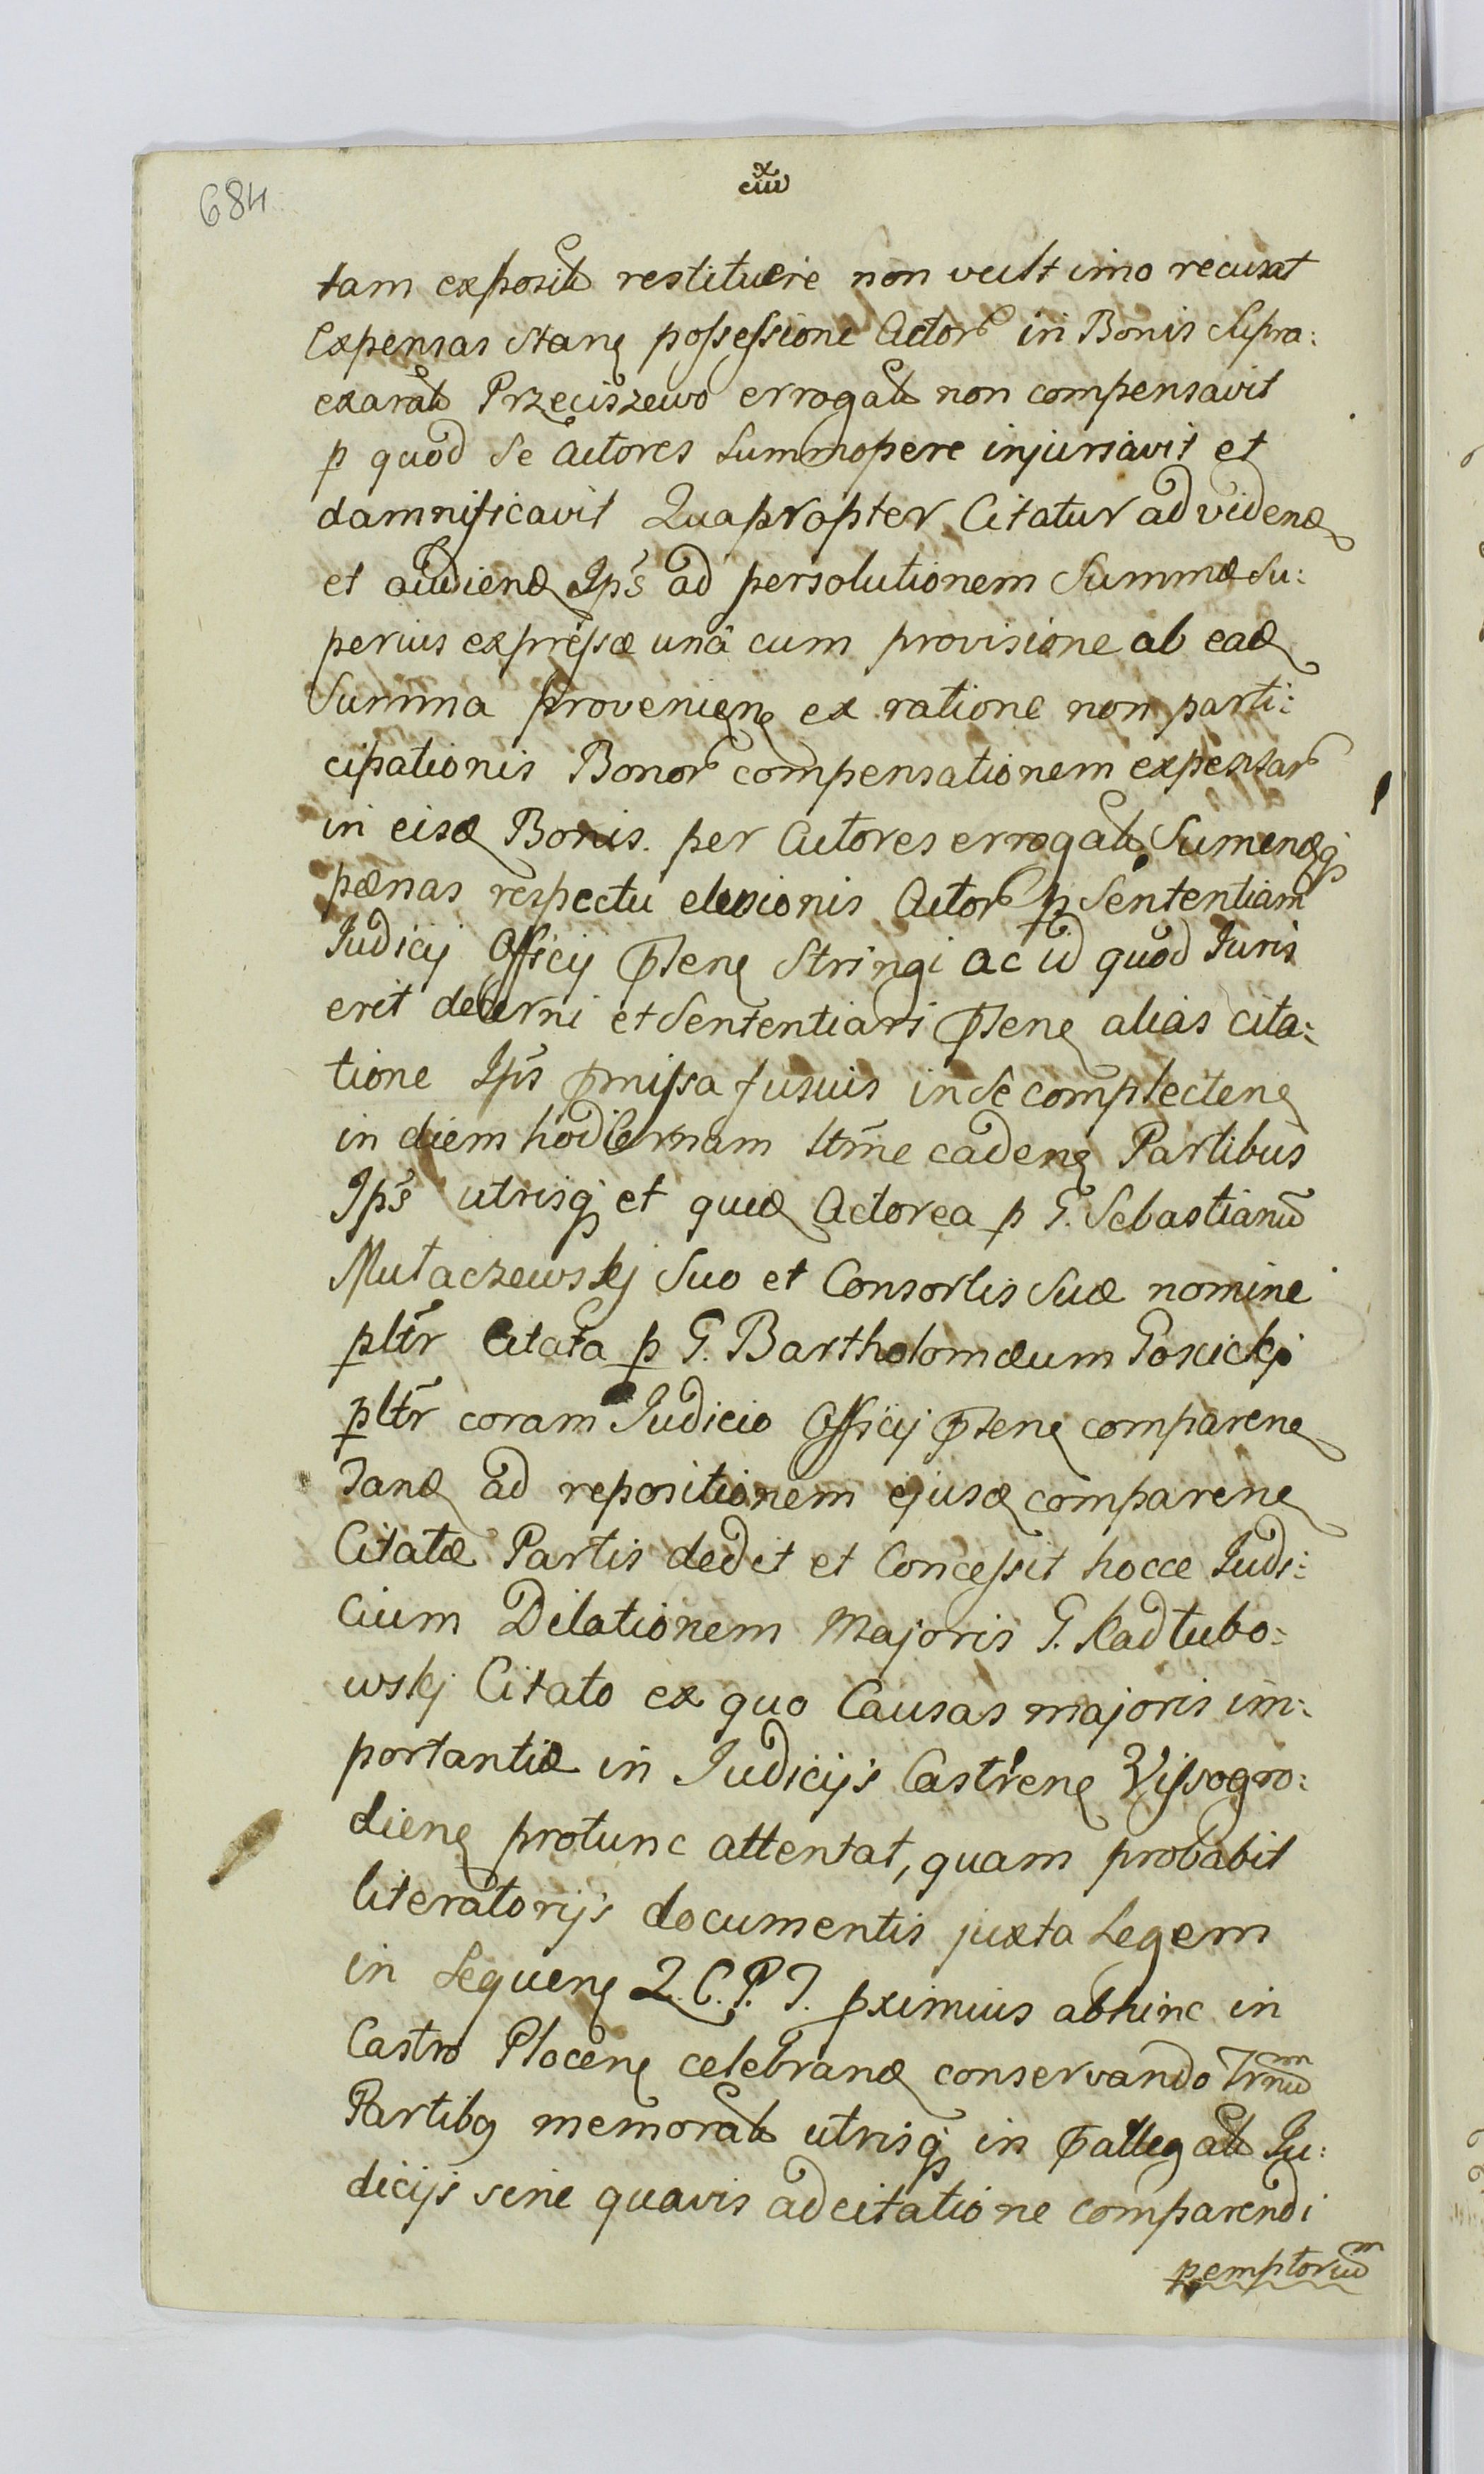 684
tam exposit restituere non vult imo recusat
Expensas stan possessione Actor in Bonis Supra:
exarat Przeciszewo errogat non compensavit
p quod se Actores Summopere injuriavit et
damnificavit Quapropter Citatur ad vidend
et audiend Ips ad persolutionem Summæ Su:
perius expressæ unâ cum provisione ab ead
Summa provenien ex ratione non parti:
cipationis Bonor compensationem expensar
in eisd Bonis per Actores errogat, Sumendq
pænas respectu elusionis Actor p Sententiam
Judicij Officij pnten Stringi ac id quod Juris
erit decerni et Sententiari pnten alias cita:
tione Ips pmissa fusius in se complecten
in diem hodiernam ltme caden Partibus
Ips utrisq et quid Actorea p G. Sebastianu
Mutaczewskj Suo et Consortis Suæ nomine
pltr Citata p G. Bartholomæum Goscickj
pltr coram Judicio Officij pnten comparen
Tand ad repositionem ejusd comparen
Citatæ Partis dedit et Concessit hocce Judi:
cium Dilationem Majoris G. Kadłubo:
wskj Citato ex quo Causas majoris im:
portantiæ in Judicijs Castren Vissogro:
dien protunc attentat, quam probabit
literatorijs documentis juxta Legem
in Sequen Q. C. P. T. pximius abhinc in
Castro Plocen celebrand conservando Trmu
Partibq memorat utrisq in pallegat Ju:
dicijs sine quavis adcitatione comparendi
pemptoriu